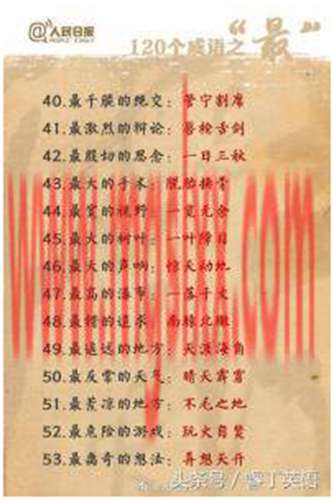 @人民日报
PEOPLE'S DAILY
120个成语之“最”
40.最干脆的绝交：管宁割席
41.最激烈的辩论：唇枪舌剑
42.最殷切的思念：一日三秋
43.最大的手术：脱胎换骨
44.最宽的视野：一览无余
45.最大的树叶：一叶障目
46.最大的声响：惊天动地
47.最高的瀑布：一落千丈
48.最错的追求：南辕北辙
49.最遥远的地方：天涯海角
50.最反常的天气：晴天霹雳
51.最荒凉的地方：不毛之地
52.最危险的游戏：玩火自焚
53.最离奇的想法：异想天开
头条号/